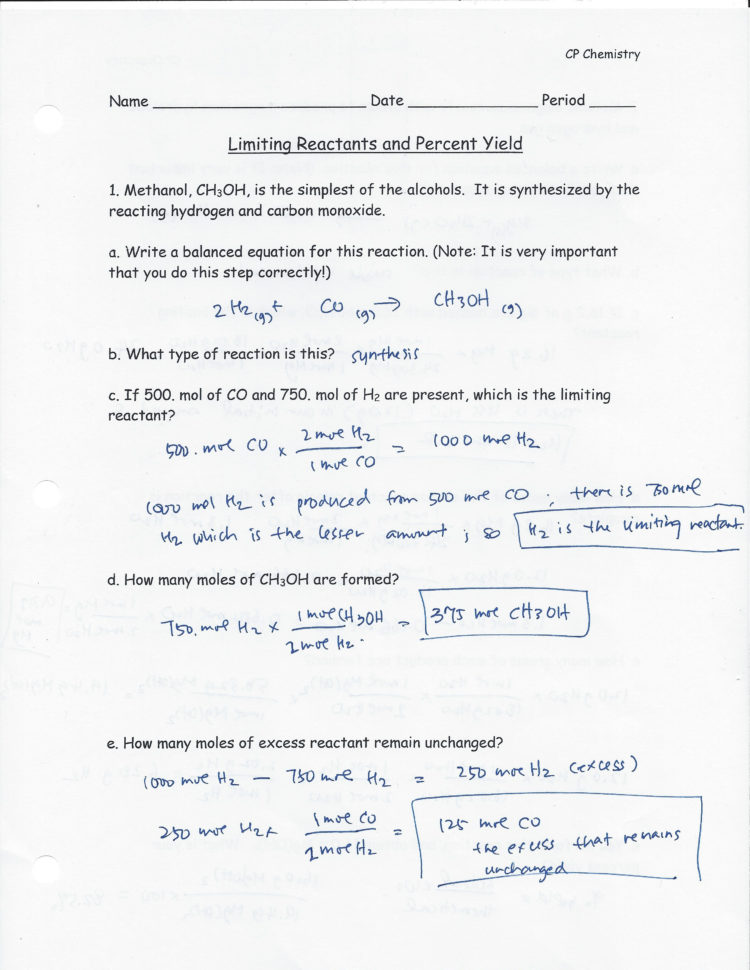 CP Chemistry
Name ____________ Date ____________ Period ______
Limiting Reactants and Percent Yield
1. Methanol, CH3OH, is the simplest of the alcohols. It is synthesized by the
reacting hydrogen and carbon monoxide.
a. Write a balanced equation for this reaction. (Note: It is very important
that you do this step correctly!)
2 H2 (g) + CO (g) → CH3OH (g)
b. What type of reaction is this? synthesis
c. If 500. mol of CO and 750. mol of H2 are present, which is the limiting
reactant?
500. mole CO x 2 mole H2 / 1 mole CO = 1000 mole H2
1000 mol H2 is produced from 500 mole CO, there is 750 mole
H2 which is the lesser amount; so H2 is the limiting reactant.
d. How many moles of CH3OH are formed?
750. mole H2 x 1 mole CH3OH / 2 mole H2 = 375 mole CH3OH
e. How many moles of excess reactant remain unchanged?
1000 mole H2 — 750 mole H2 = 250 mole H2 (excess)
250 mole H2 x 1 mole CO / 2 mole H2 = 125 mole CO
the excess that remains
unchanged